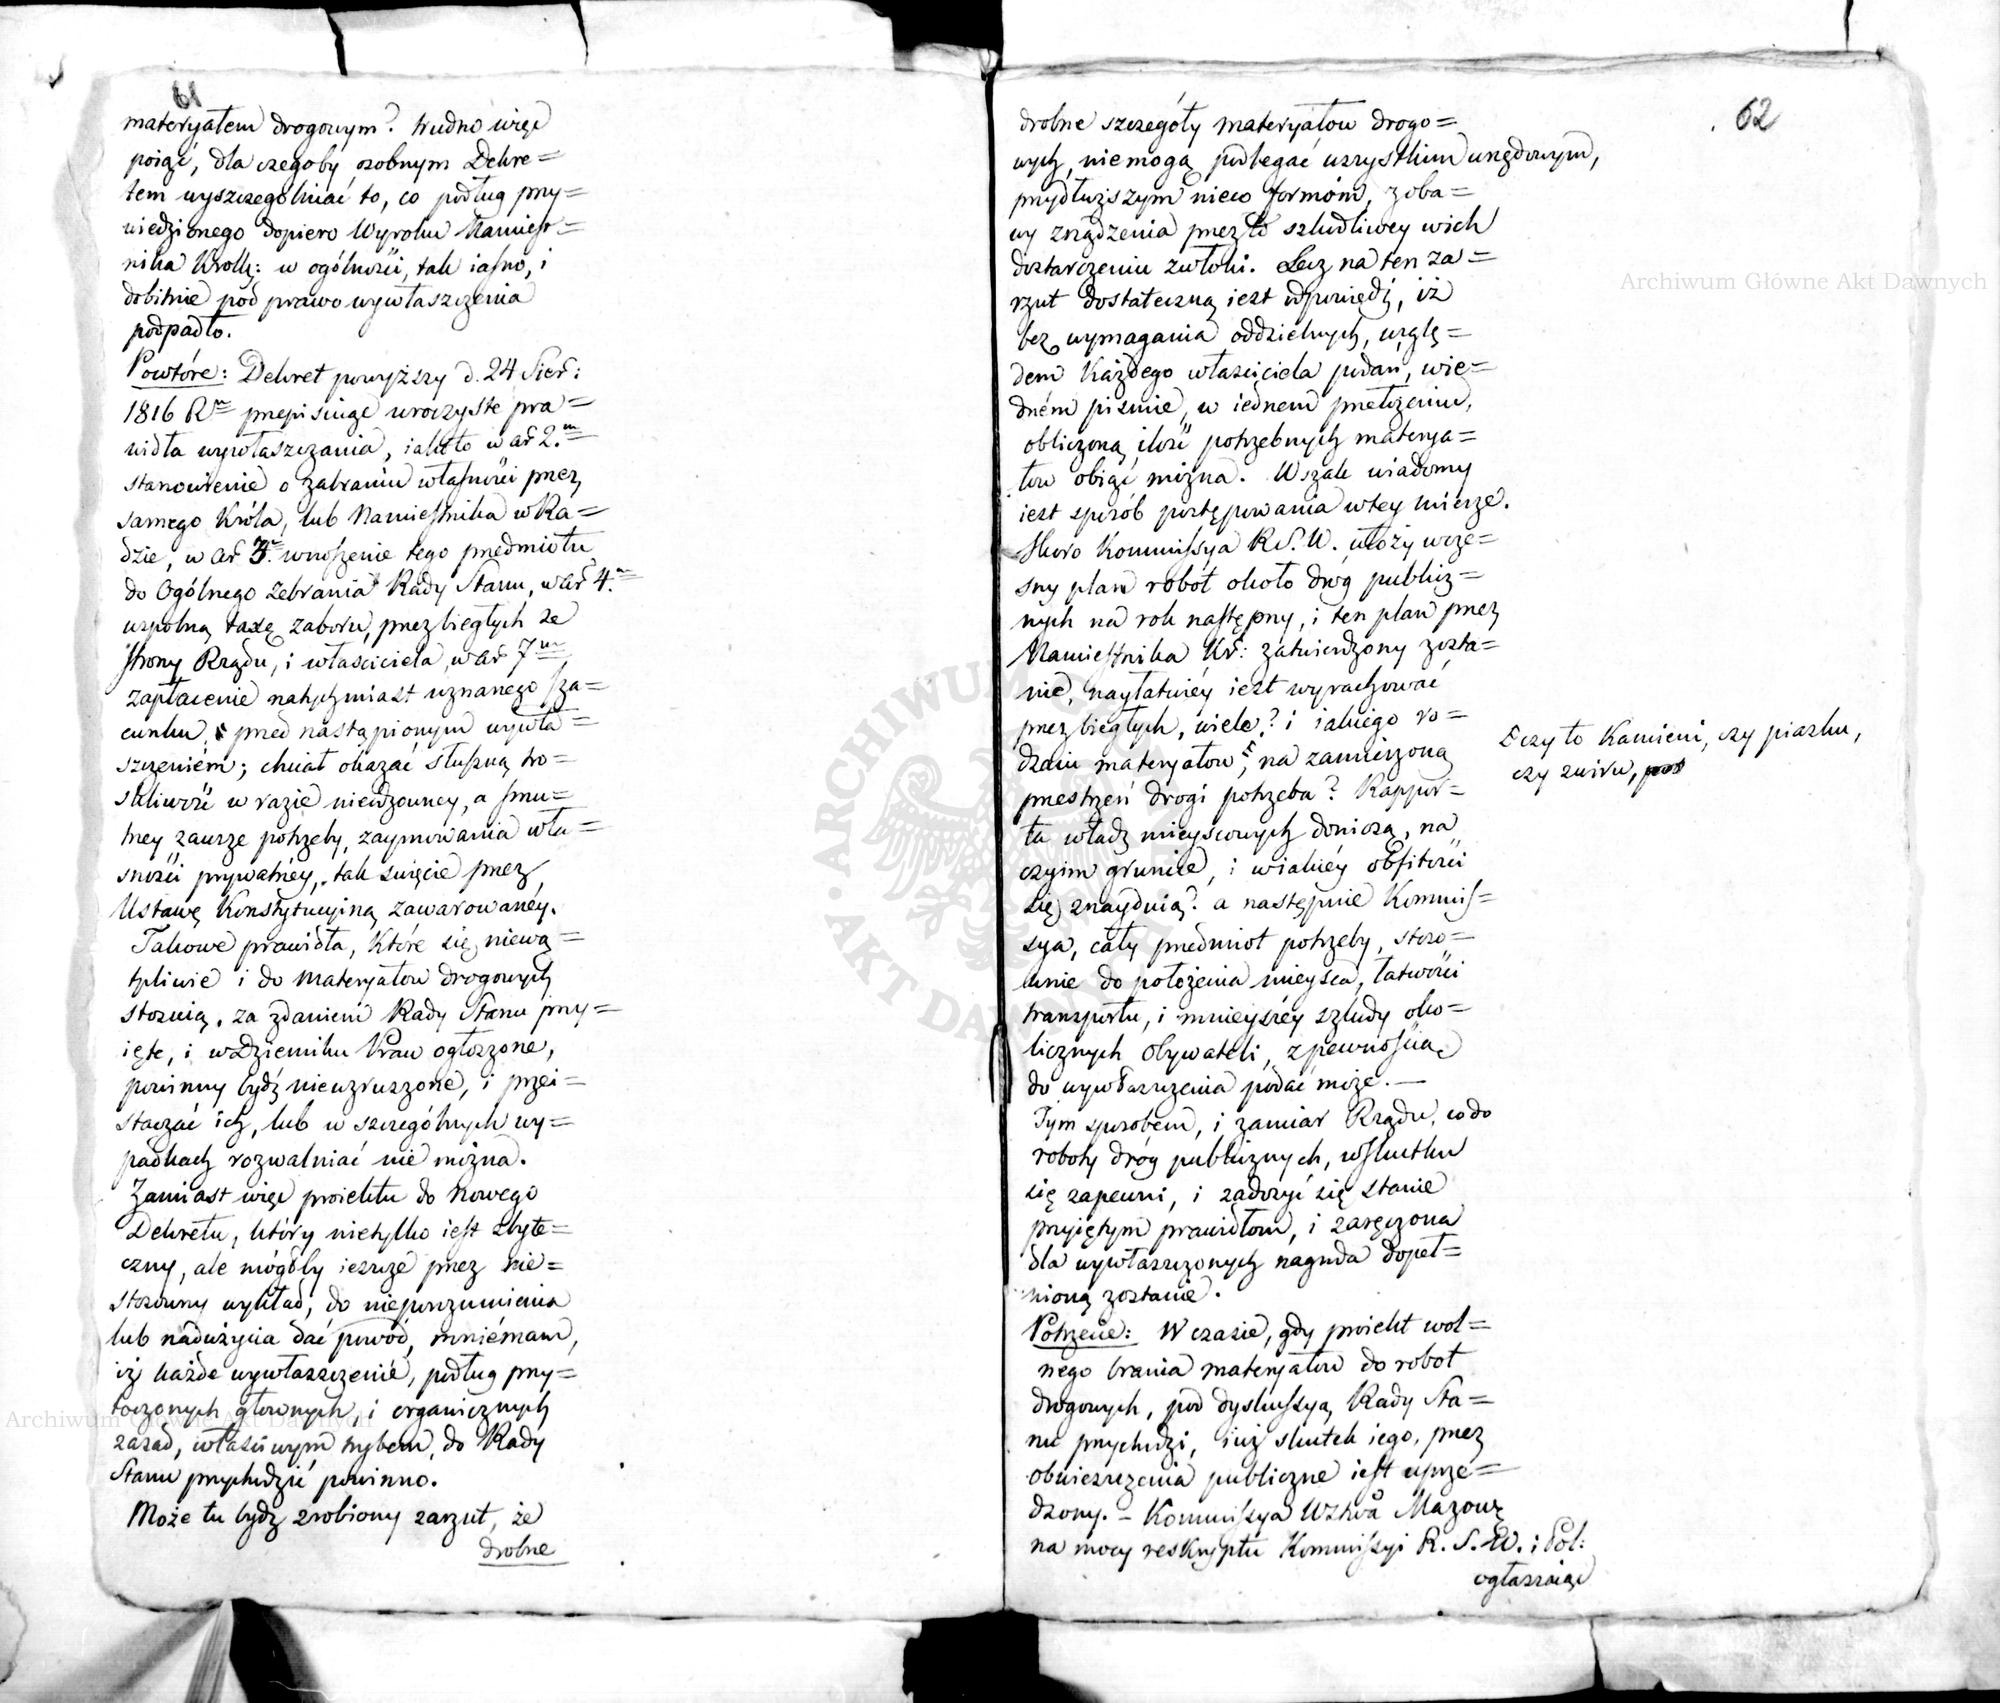 61
materyałem drogowym? trudno więc
poiąć, dla czegoby osobnym Dekre=
tem wyszczególniać to, co podług przy=
wiedzionego dopiero Wyroku Namiest=
nika Krolk: w ogólności, tak iasno, i
dobitnie pod prawo wywłaszczenia
podpadło.
Powtóre: Dekret powyższy d. 24 Sier:
1816 R. przepisuiąc uroczyste pra=
widła wywłaszczania, iakoto w ar 2.m
stanowienie o zabraniu własności przez
samego Króla, lub Namiestnika w Ra=
dzie, w ar 3. wnoszenie tego przedmiotu
do Ogólnego Zebrania Rady Stanu, w ar 4.m
wspolną taxę zaboru, przez biegłych ze
strony Rządu, i właściciela, w ar 7m
zapłacenie natychmiast uznanego sza=
cunku, przed nastąpionym wywła=
szczeniém; chciał okazać słuszną tro=
skliwość w razie niewzowney, a smu=
tney zawsze potrzeby, zaymowania wła=
sności prywatnéy, tak święcie przez
Ustawę Konstytucyiną zawarowanéy.
Takowe prawidła, które się niewą=
tpliwie i do materyałow drogowych
stosuią, za zdaniem Rady Stanu przy=
ięte, i w Dzienniku Praw ogłoszone,
powinny bydź niewzruszone, i przei=
staczać ich, lub w szczególnych wy=
padkach rozwalniać nie można.
Zamiast więc proiektu do nowego
Dekretu, który nietylko iest zbyte=
czny, ale mógłby ieszcze przez nie=
stosowny wykład, do nieporozumienia
lub nadużycia dać powód, mniémam,
iż każde wywłaszczenié, podług przy=
toczonych głownych, i organicznych
zasad, właściwym trybem, do Rady
Stanu przychodzić powinno.
Może tu bydź zrobiony zarzut, że
drobne
62
drobne szczegóły materyałow drogo=
wych, niemogą podlegać wszystkim urzędowym,
przydłuższym nieco formóm, z oba=
wy zrządzenia przez to szkodliwey w ich
dostarczeniu zwłoki. Lecz na ten za=
rzut dostateczną iest odpowiedź, iż
bez wymagania oddzielnych, wzglę=
dem Każdego właściciela podań, w ie=
dném piśmie, w iednem przełożeniu,
obliczoną ilość potrzebnych materya=
łow obiąć można. Wszak wiadomy
iest sposób postępowania w tey mierze.
Skoro Kommissya R. S. W. ułoży wcze=
sny plan robót około dróg publicz=
nych na rok następny, i ten plan przez
Namiestnika Kr: zatwierdzony zosta=
nie, nayłatwiéy iest wyrachować
przez biegłych, wiele? i iakiego ro=
dzaiu materyałow, na zamierzoną
przestrzeń drogi potrzeba? Rappor=
ta władz mieyscowych doniosą, na
czyim gruncie, i w iakiéy obfitości
się znayduią? a następnie Kommis=
sya, cały przedmiot potrzeby, stoso=
wnie do położenia mieysca, łatwości
transportu, i mnieyszéy szkody oko=
licznych obywateli, z pewnością
do wywłaszczenia podać może. —
Tym sposobem, i zamiar Rządu, co do
roboty dróg publicznych, w skutku
się zapewni, i zadosyć się stanie
przyiętym prawidłom, i zaręczona
dla wywłaszczonych nagroda dopeł=
nioną zostanie.
Potrzecie: W czasie, gdy proiekt wol=
nego brania materyałow do robot
drogowych, pod dyskussyą Rady Sta=
nu przychodzi, iuż skutek iego, przez
obwieszczenia publiczne iest uprze=
dzony. — Kommissya Wztwa Mazow:
na mocy reskryptu Kommissyi R. S. W. i Pol:
ogłaszaiąc
czy to Kamieni, czy piasku,
czy żwiru,
Archiwum Główne Akt Dawnych
Archiwum Główne Akt Dawnych
ARCHIWUM GŁÓWNE AKT DAWNYCH